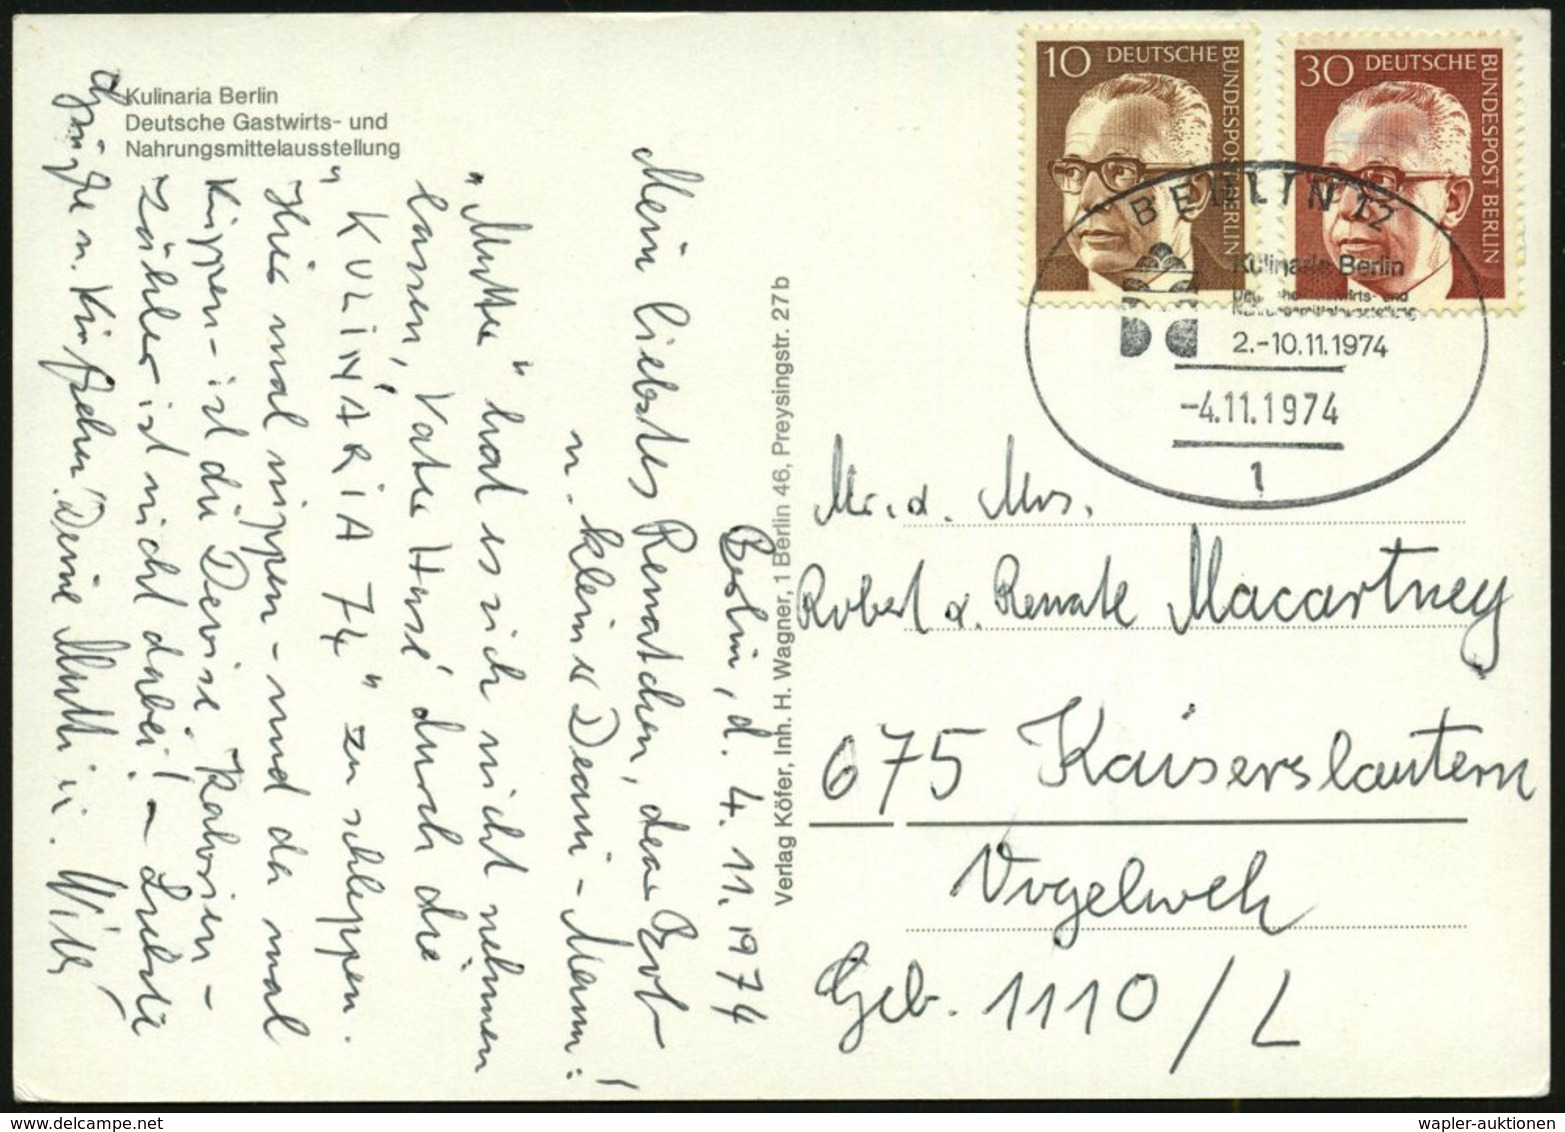 Kulinaria Berlin
Deutsche Gastwirts- und
Nahrungsmittelausstellung
10 DEUTSCHE BUNDESPOST BERLIN
30 DEUTSCHE BUNDESPOST BERLIN
BERLIN 12
Kulinaria Berlin
Deutsche Gastwirts- und
Nahrungsmittelausstellung
2.-10.11.1974
-4.11.1974
1
Verlag Köfer, Inh. H. Wagner, 1 Berlin 46, Preysingstr. 27b
Berlin, d. 4.11.1974
Mein liebstes Renatchen, dear Bob
u. kleiner Deani-Mann!
"Mutti" hat es sich nicht nehmen
lassen, Vater durch die
"KULINARIA 74" zu schleppen.
Hier mal nippen - und da mal
kippen - ist die Devise, Kalorien-
zähler ist nicht dabei! -
Grüße u. Deine Mutti u. Willi
Mr. a. Mrs.
Robert a. Renate Macartney
675 Kaiserslautern
Vogelweh
Geb. 1110/L
wapler-auktionen